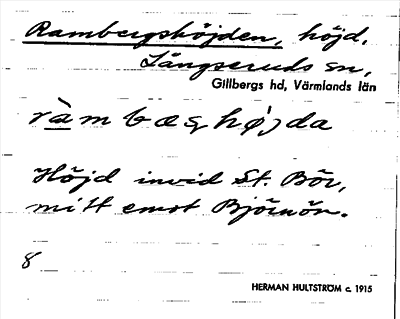 Rambergshöjden, höjd.
Långseruds sn,
Gillbergs hd, Värmlands län
ràmbæshøjda
Höjd invid St. Bör,
mitt emot Björnön.
8
HERMAN HULTSTRÖM c. 1915